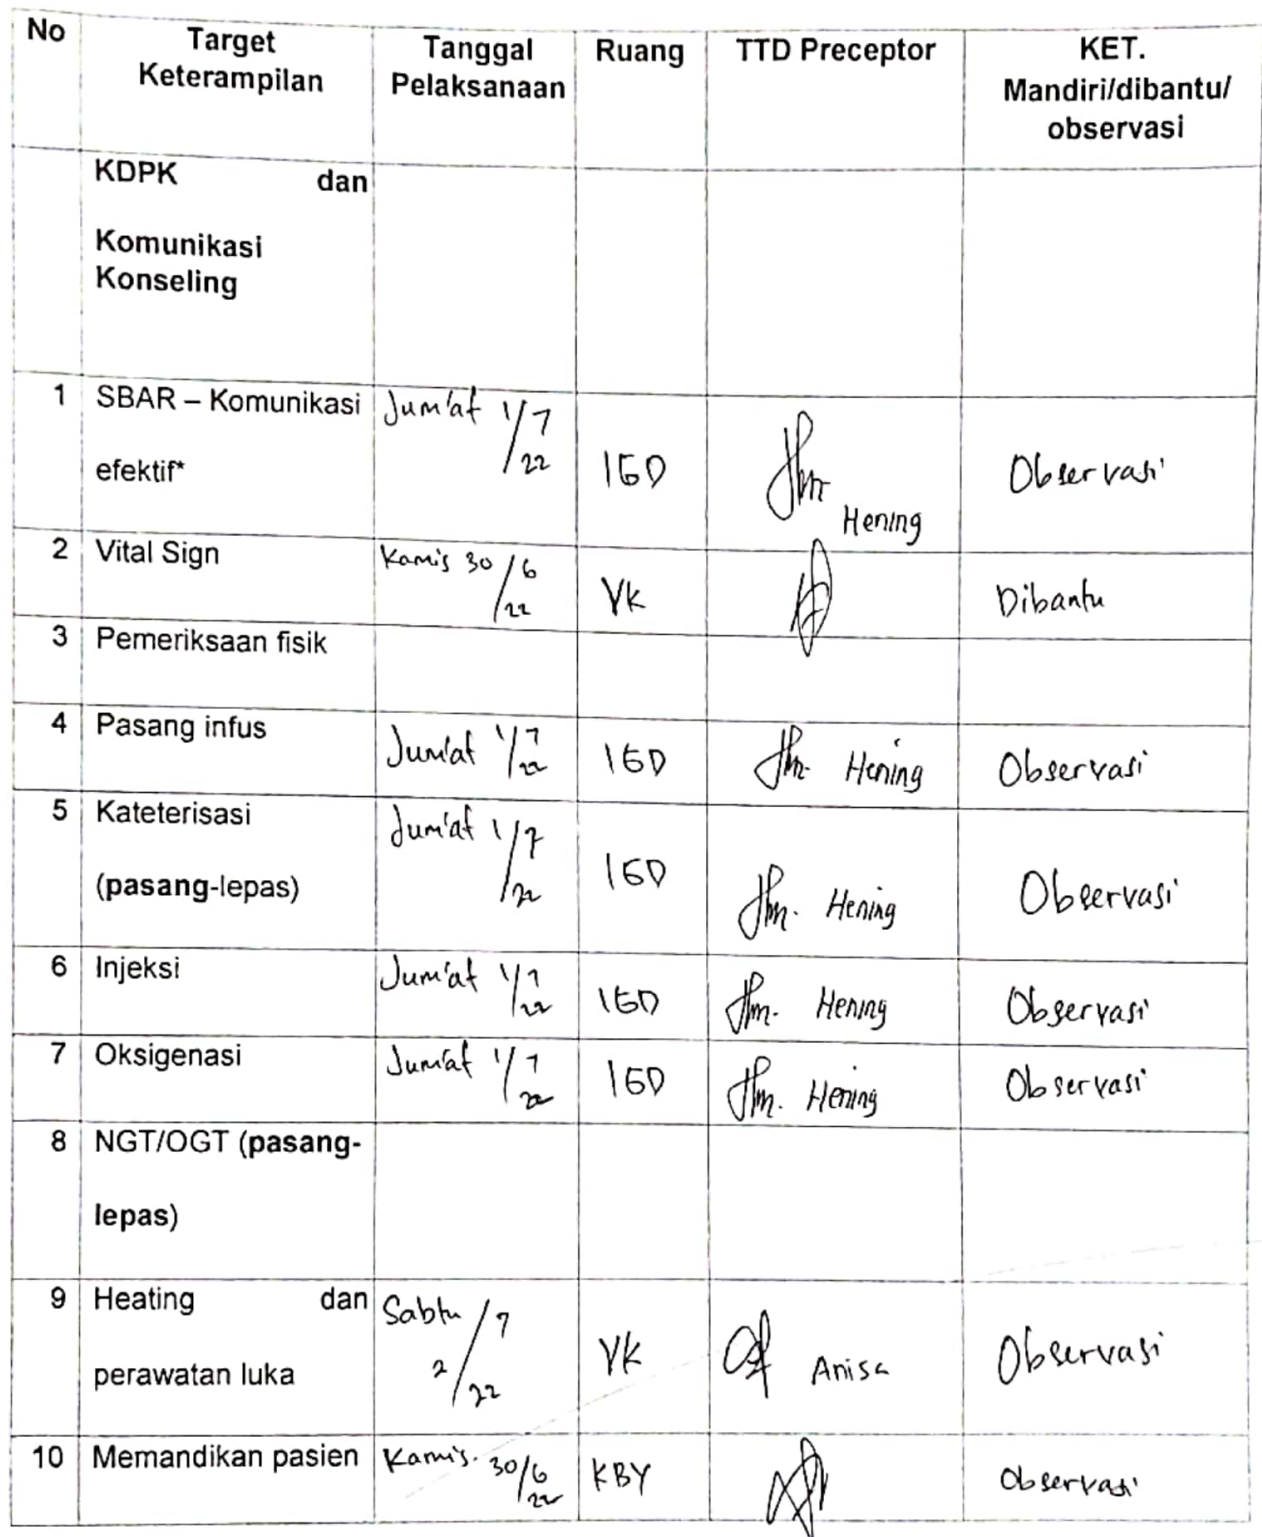 No Target Keterampilan Tanggal Pelaksanaan Ruang TTD Preceptor KET. Mandiri/dibantu/ observasi
KDPK dan
Komunikasi
Konseling
1 SBAR – Komunikasi efektif* Jum'at 1/7/22 IGD Hening Observasi
2 Vital Sign Kamis 30/6/22 VK Dibantu
3 Pemeriksaan fisik
4 Pasang infus Jum'at 1/7/22 IGD Hening Observasi
5 Kateterisasi (pasang-lepas) Jum'at 1/7/22 IGD Hening Observasi
6 Injeksi Jum'at 1/7/22 IGD Hening Observasi
7 Oksigenasi Jum'at 1/7/22 IGD Hening Observasi
8 NGT/OGT (pasang-lepas)
9 Heating dan perawatan luka Sabtu 2/7/22 VK Anisa Observasi
10 Memandikan pasien Kamis 30/6/22 KBY Observasi